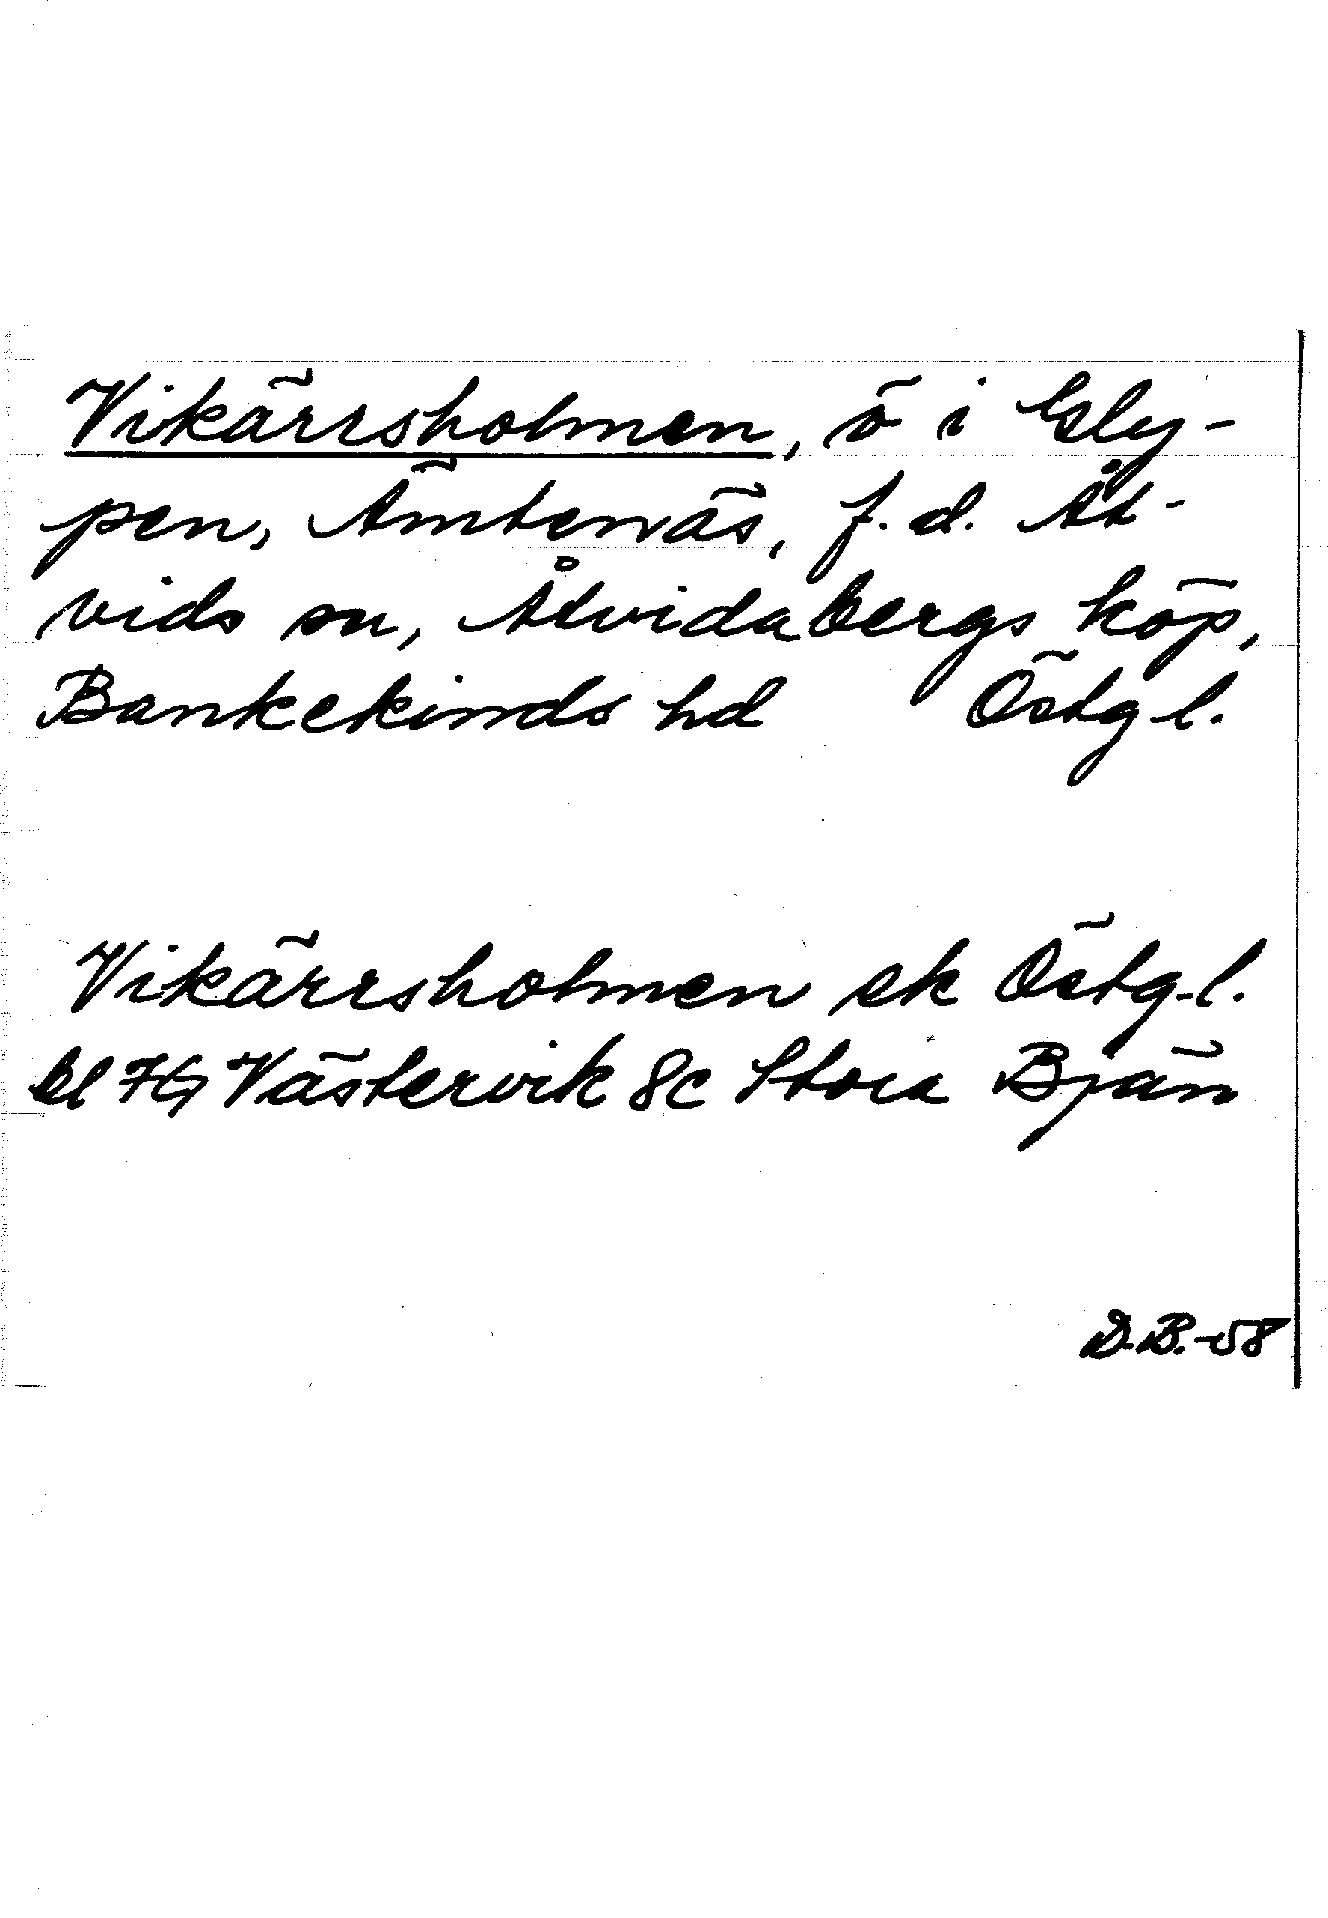 Vikärrsholmen, ö i Gly-
pen, Ämtenäs, f.d. Åt-
vids sn, Åtvidabergs köp,
Bankekinds hd Östgl.
Vikärrsholmen ek Östg.l.
bl 7G Västervik 8c Stora Bjän
D.B.-58